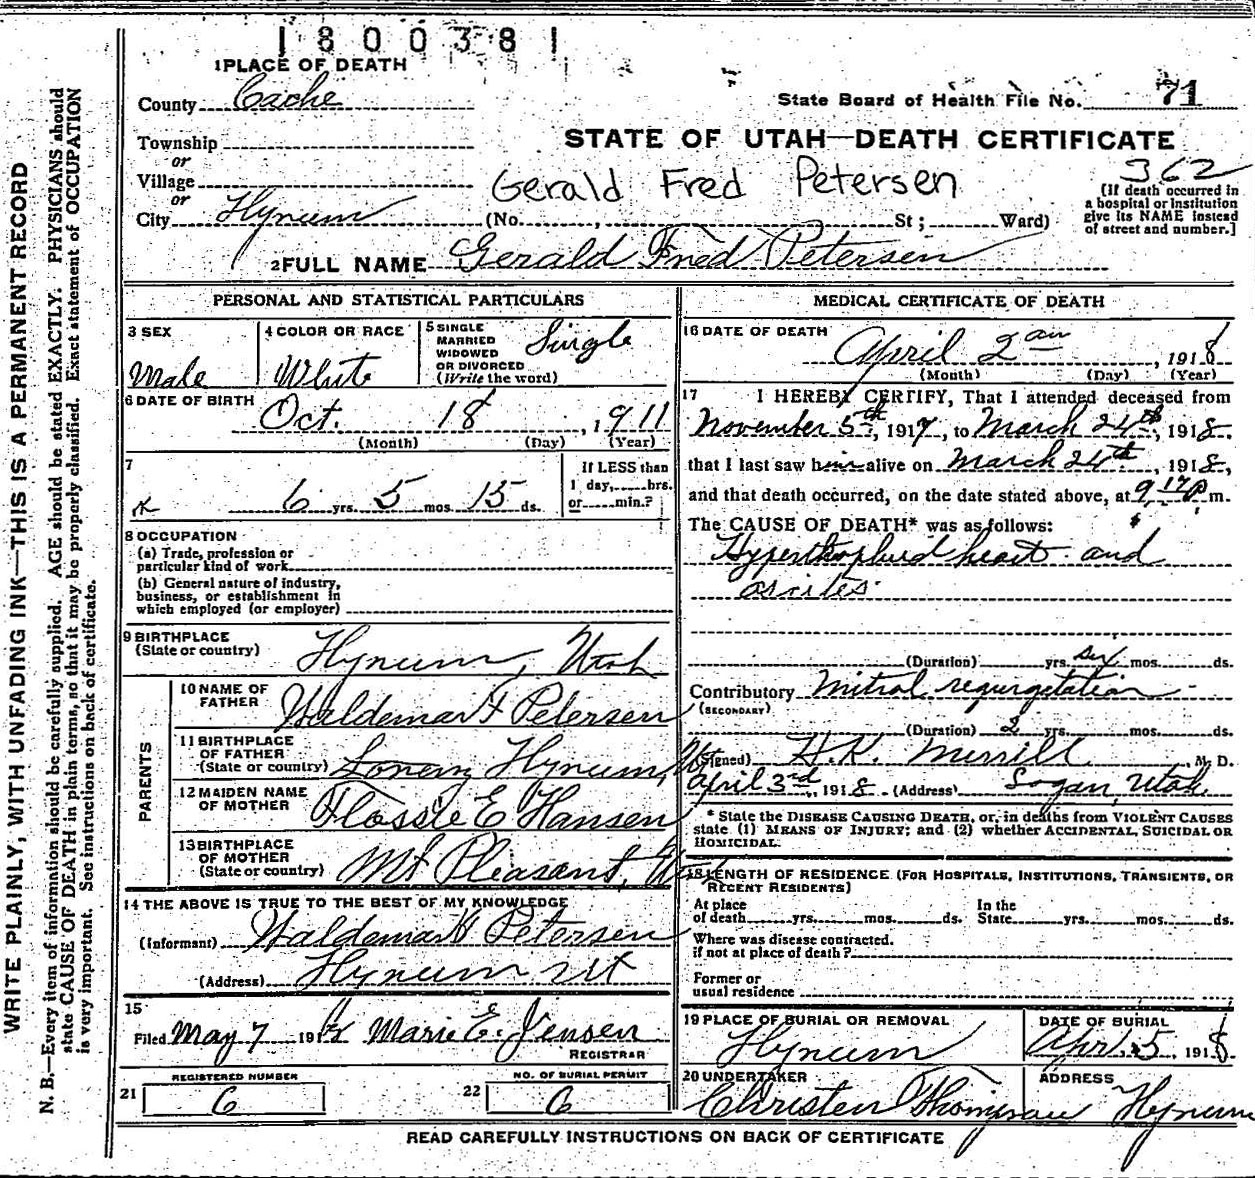 1800381
1 PLACE OF DEATH
County Cache
State Board of Health File No. 71
Township
or
Village
or
City Hyrum
STATE OF UTAH—DEATH CERTIFICATE
Gerald Fred Petersen
362
(No. , St ; Ward)
(If death occurred in
a hospital or institution
give its NAME instead
of street and number.]
2 FULL NAME Gerald Fred Petersen
PERSONAL AND STATISTICAL PARTICULARS
3 SEX
Male
4 COLOR OR RACE
White
5 SINGLE
MARRIED
WIDOWED
OR DIVORCED
(Write the word)
Single
6 DATE OF BIRTH
Oct. 18, 1911
(Month) (Day) (Year)
7
6 yrs. 5 mos. 15 ds.
If LESS than
1 day, hrs.
or min.?
8 OCCUPATION
(a) Trade, profession or
particular kind of work
(b) General nature of industry,
business, or establishment in
which employed (or employer)
9 BIRTHPLACE
(State or country)
Hyrum, Utah
PARENTS
10 NAME OF
FATHER
Waldemar F Petersen
11 BIRTHPLACE
OF FATHER
(State or country)
Hyrum,
12 MAIDEN NAME
OF MOTHER
Flossie E Hansen
13 BIRTHPLACE
OF MOTHER
(State or country)
Mt Pleasant, Utah
14 THE ABOVE IS TRUE TO THE BEST OF MY KNOWLEDGE
(Informant) Waldemar Petersen
(Address) Hyrum Ut
15
Filed May 7 191 Marie E. Jensen
REGISTRAR
21
REGISTERED NUMBER
6
22
NO. OF BURIAL PERMIT
6
MEDICAL CERTIFICATE OF DEATH
16 DATE OF DEATH
April 2, 1918
(Month) (Day) (Year)
17 I HEREBY CERTIFY, That I attended deceased from
November 5th, 1917, to March 24th, 1918.
that I last saw him alive on March 24th, 1918,
and that death occurred, on the date stated above, at 9 m.
The CAUSE OF DEATH* was as follows:
Hyperthophied heart and
ascites
(Duration) yrs. six mos. ds.
Contributory Mitral regurgetation
(SECONDARY)
(Duration) 2 yrs. mos. ds.
(Signed) H.K. Merrill M. D.
April 3rd, 1918 (Address) Logan, Utah
* State the DISEASE CAUSING DEATH, or, in deaths from VIOLENT CAUSES
state (1) MEANS OF INJURY; and (2) whether ACCIDENTAL, SUICIDAL OR
HOMICIDAL.
18 LENGTH OF RESIDENCE (FOR HOSPITALS, INSTITUTIONS, TRANSIENTS, OR
RECENT RESIDENTS)
At place
of death yrs. mos. ds.
In the
State yrs. mos. ds.
Where was disease contracted.
if not at place of death?
Former or
usual residence
19 PLACE OF BURIAL OR REMOVAL
Hyrum
DATE OF BURIAL
April 5 1918
20 UNDERTAKER
Christen
ADDRESS
Hyrum
READ CAREFULLY INSTRUCTIONS ON BACK OF CERTIFICATE
WRITE PLAINLY, WITH UNFADING INK—THIS IS A PERMANENT RECORD
N. B.—Every item of information should be carefully supplied. AGE should be stated EXACTLY. PHYSICIANS should
state CAUSE OF DEATH in plain terms, so that it may be properly classified. Exact statement of OCCUPATION
is very important. See instructions on back of certificate.